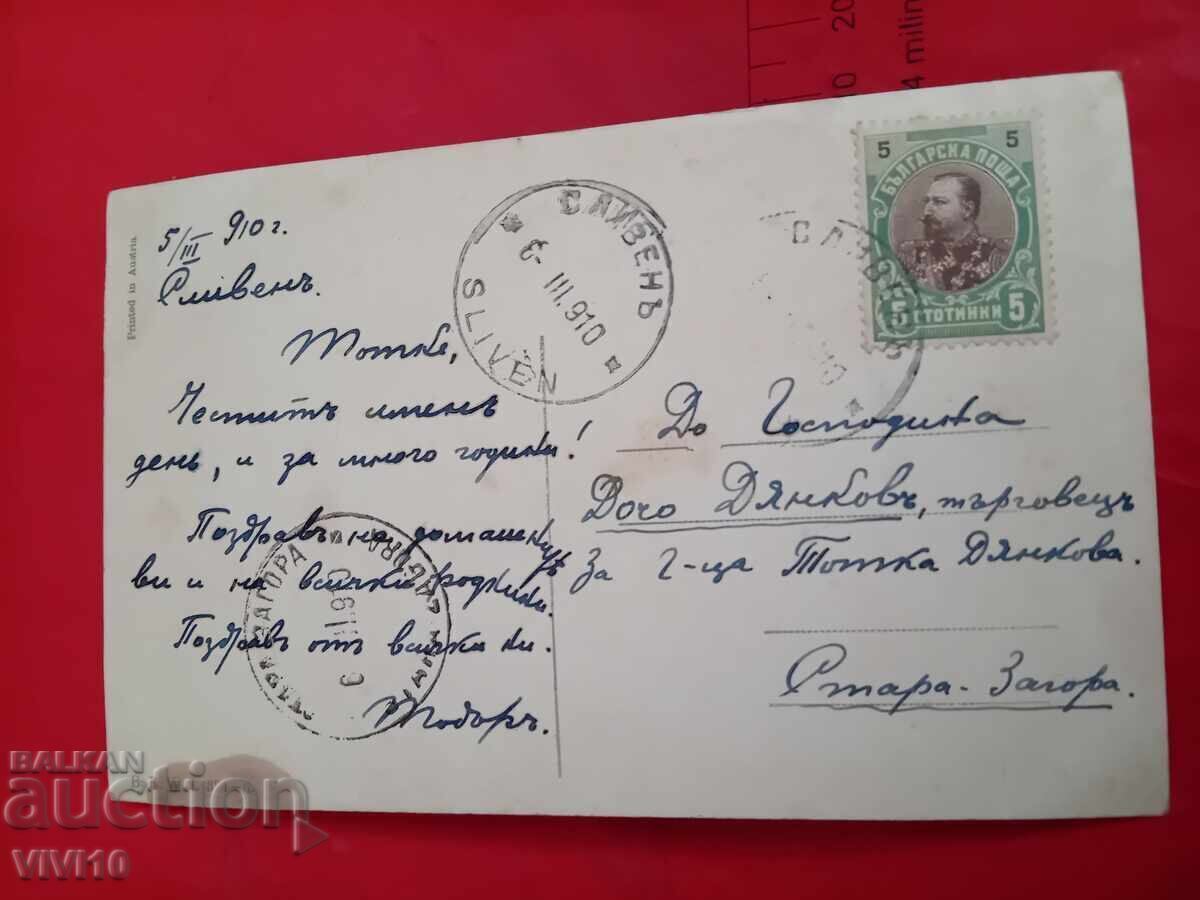 20
10
4 milin
5 5
БЪЛГАРСКА ПОЩА
5 СТОТИНКИ 5
СЛИВЕНЪ
6- III.910
SLIVEN
СЛИВЕНЪ
Printed in Austria
5/III 910 г.
Сливенъ.
Тотке,
Честитъ именъ
день, и за много години!
Поздравъ на домашни тѣ
ви и на всички роднини.
Поздравъ отъ всички ни.
Тодоръ.
До Господина
Дочо Дянковъ, търговецъ
За г-ца Тотка Дянкова.
Стара-Загора.
ЗАГОРА
6 III 910
BALKAN
auction
VIVI10